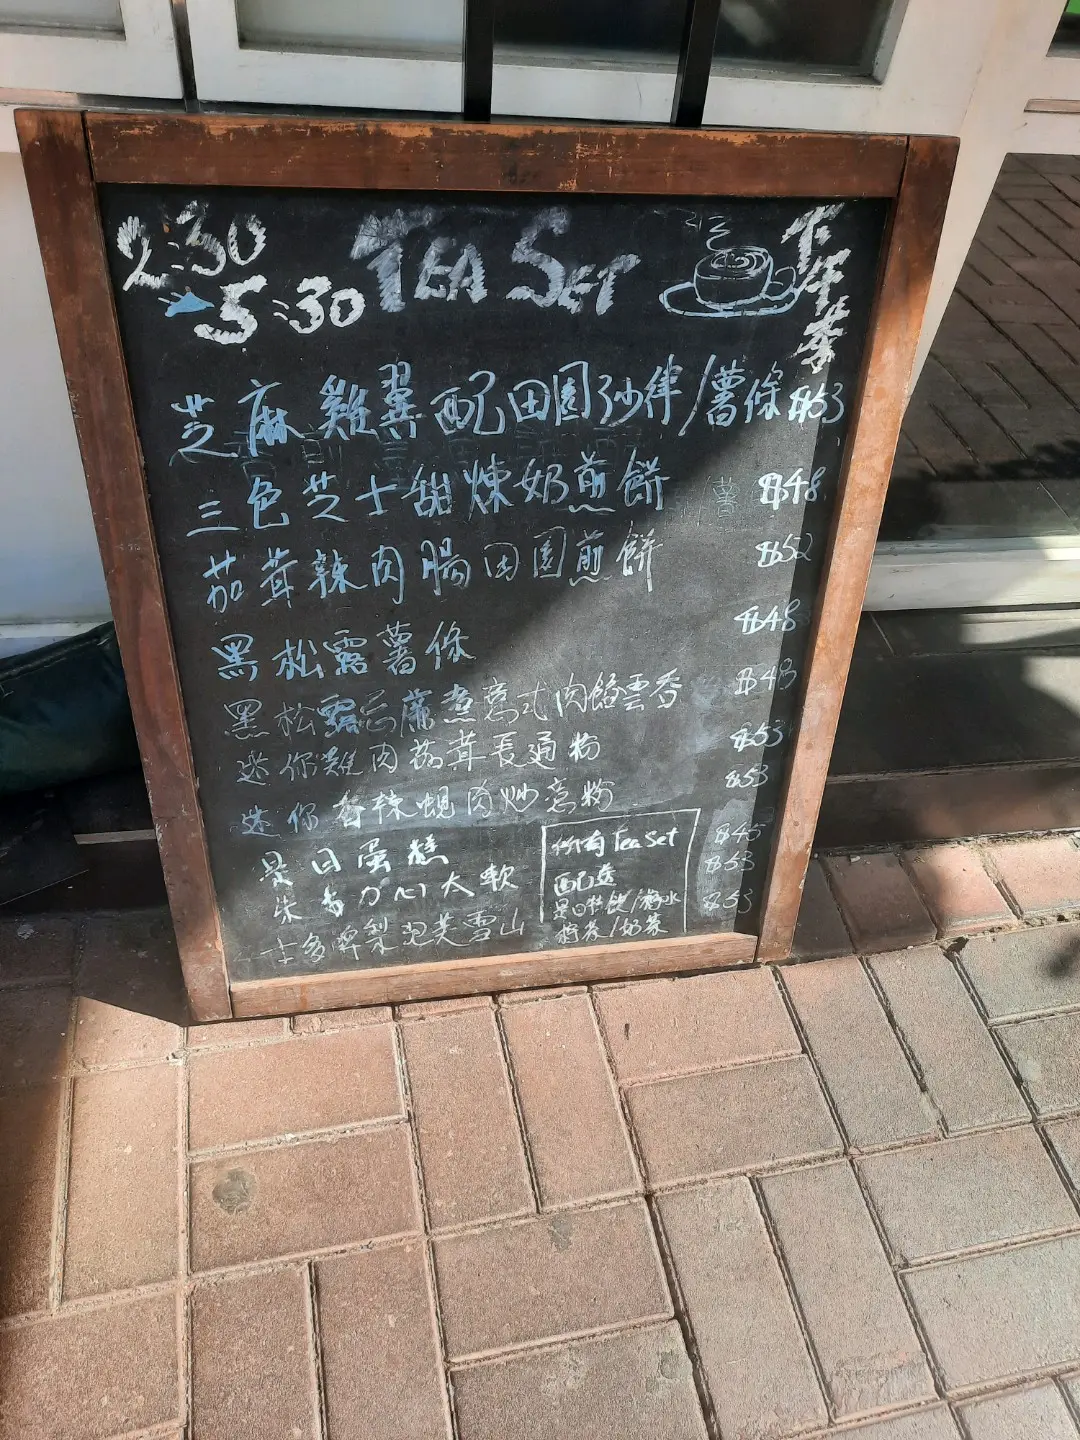 2:30
5:30
TEA SET
下午茶
芝麻雞翼配田園沙律/薯條 $53
三色芝士甜煉奶煎餅 $48
茄茸辣肉腸田園煎餅 $52
黑松露薯條 $48
黑松露忌廉煮意式肉餡雲吞 $48
迷你雞肉茄茸長通粉 $53
迷你香辣蜆肉炒意粉 $53
是日蛋糕 $45
朱古力心太軟 $53
士多啤梨泡芙雪山 $53
所有 Tea Set
配送
是日特飲/梳水
檸茶/奶茶